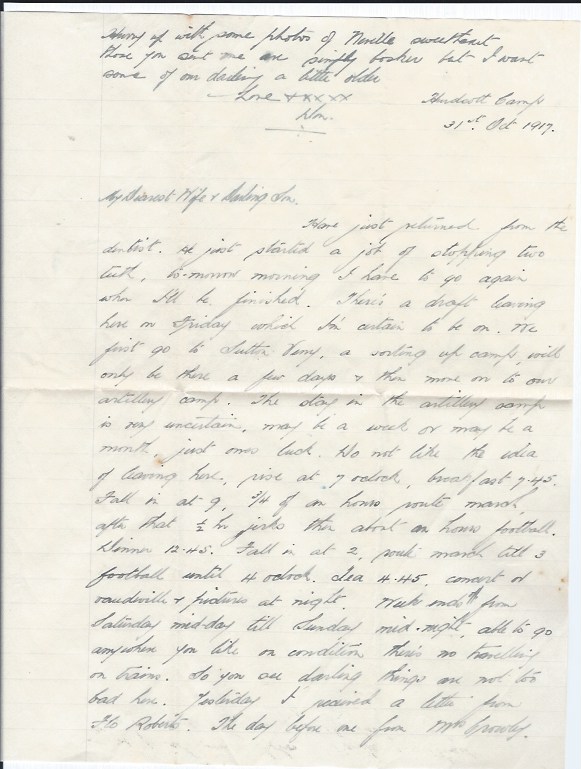 Hurry up with some photos of Neville sweetheart
those you sent me are simply bosker but I want
some of our darling a little older
Love xxxxx
Don.
Hurdcott Camp
31st. Oct 1917.
My Dearest Wife & Darling Son.
Have just returned from the
dentist. He just started a job of stopping two
teeth, to-morrow morning I have to go again
when I'll be finished. There's a draft leaving
here on Friday which I'm certain to be on. We
first go to Sutton Veny, a sorting up camp, will
only be there a few days & then move on to our
artillery camp. The stay in the artillery camp
is very uncertain, may be a week or may be a
month, just ones luck. Do not like the idea
of leaving here, rise at 7 oclock, breakfast 7.45.
Fall in at 9, 3/4 of an hours route march,
after that 1/2 hr jerks then about an hours football.
Dinner 12.45. Fall in at 2, route march till 3
football until 4 oclock. Tea 4.45, concert or
vaudeville & pictures at night. Week ends from
Saturday mid-day till Sunday mid-night, able to go
anywhere you like on condition there's no travelling
on trains. So you see darling things are not too
bad here. Yesterday I received a letter from
Flo Roberts. The day before one from Mrs